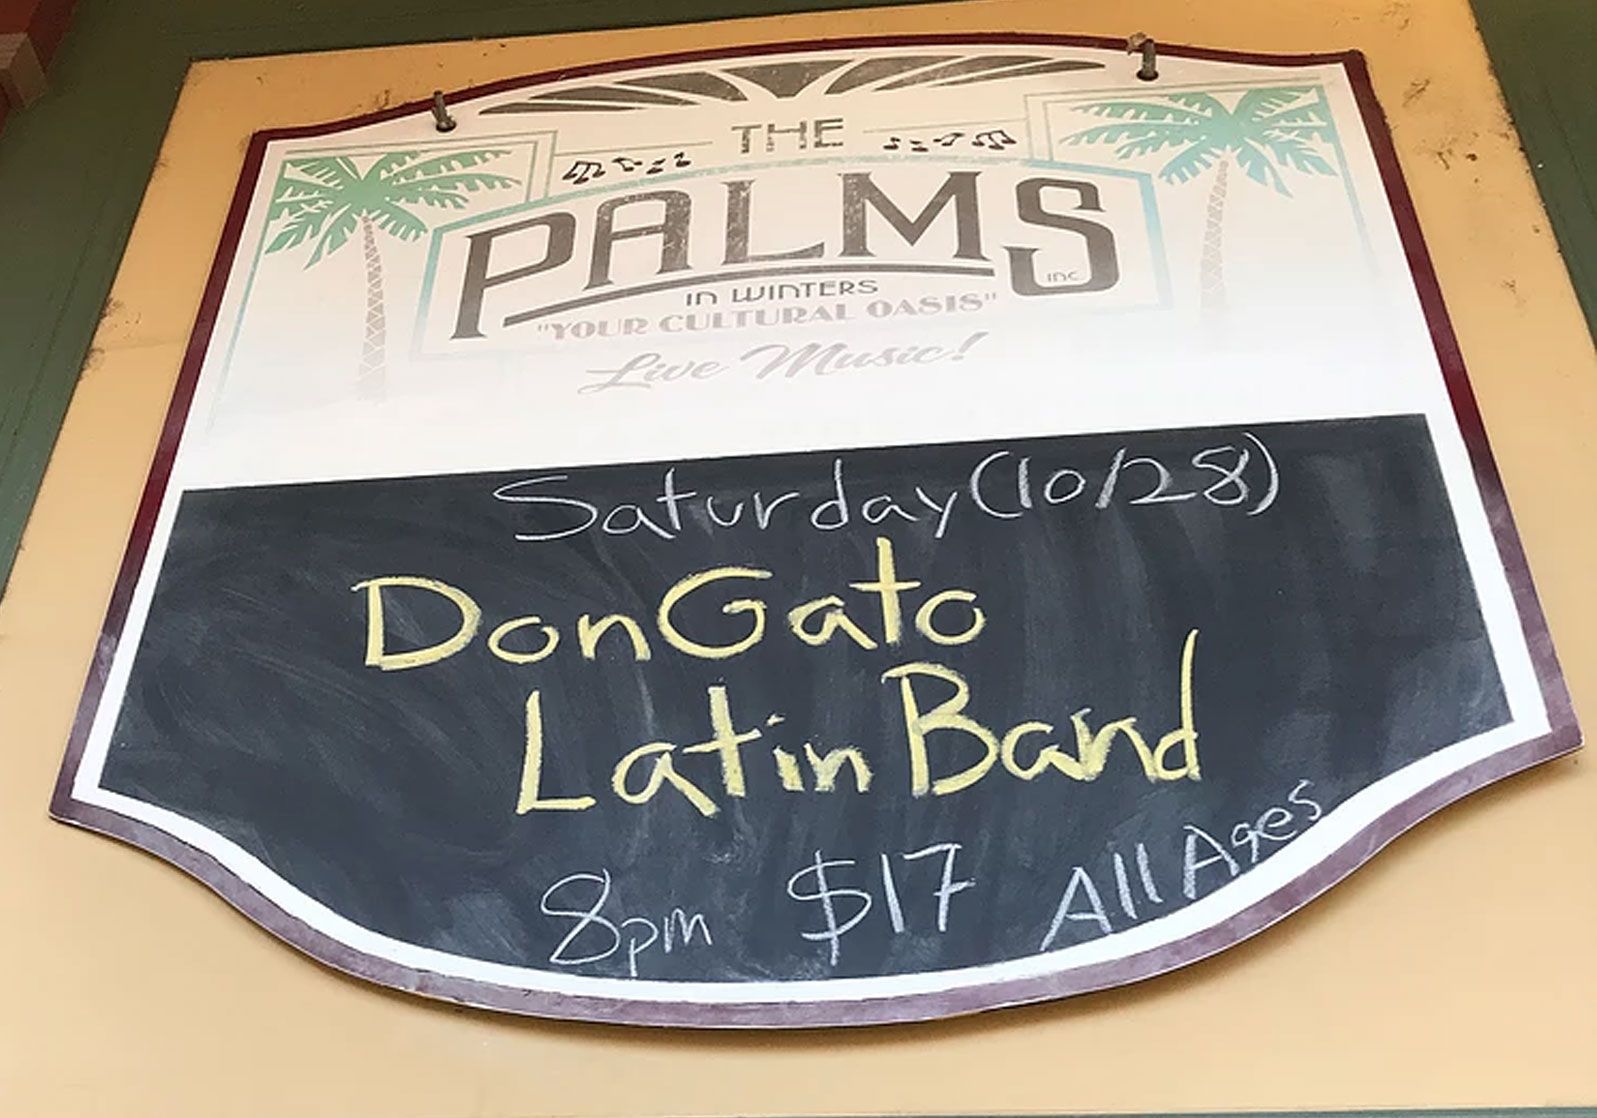 THE
PALMS INC.
IN WINTERS
"YOUR CULTURAL OASIS"
Live Music!
Saturday (10/28)
Don Gato
Latin Band
8pm $17 All Ages